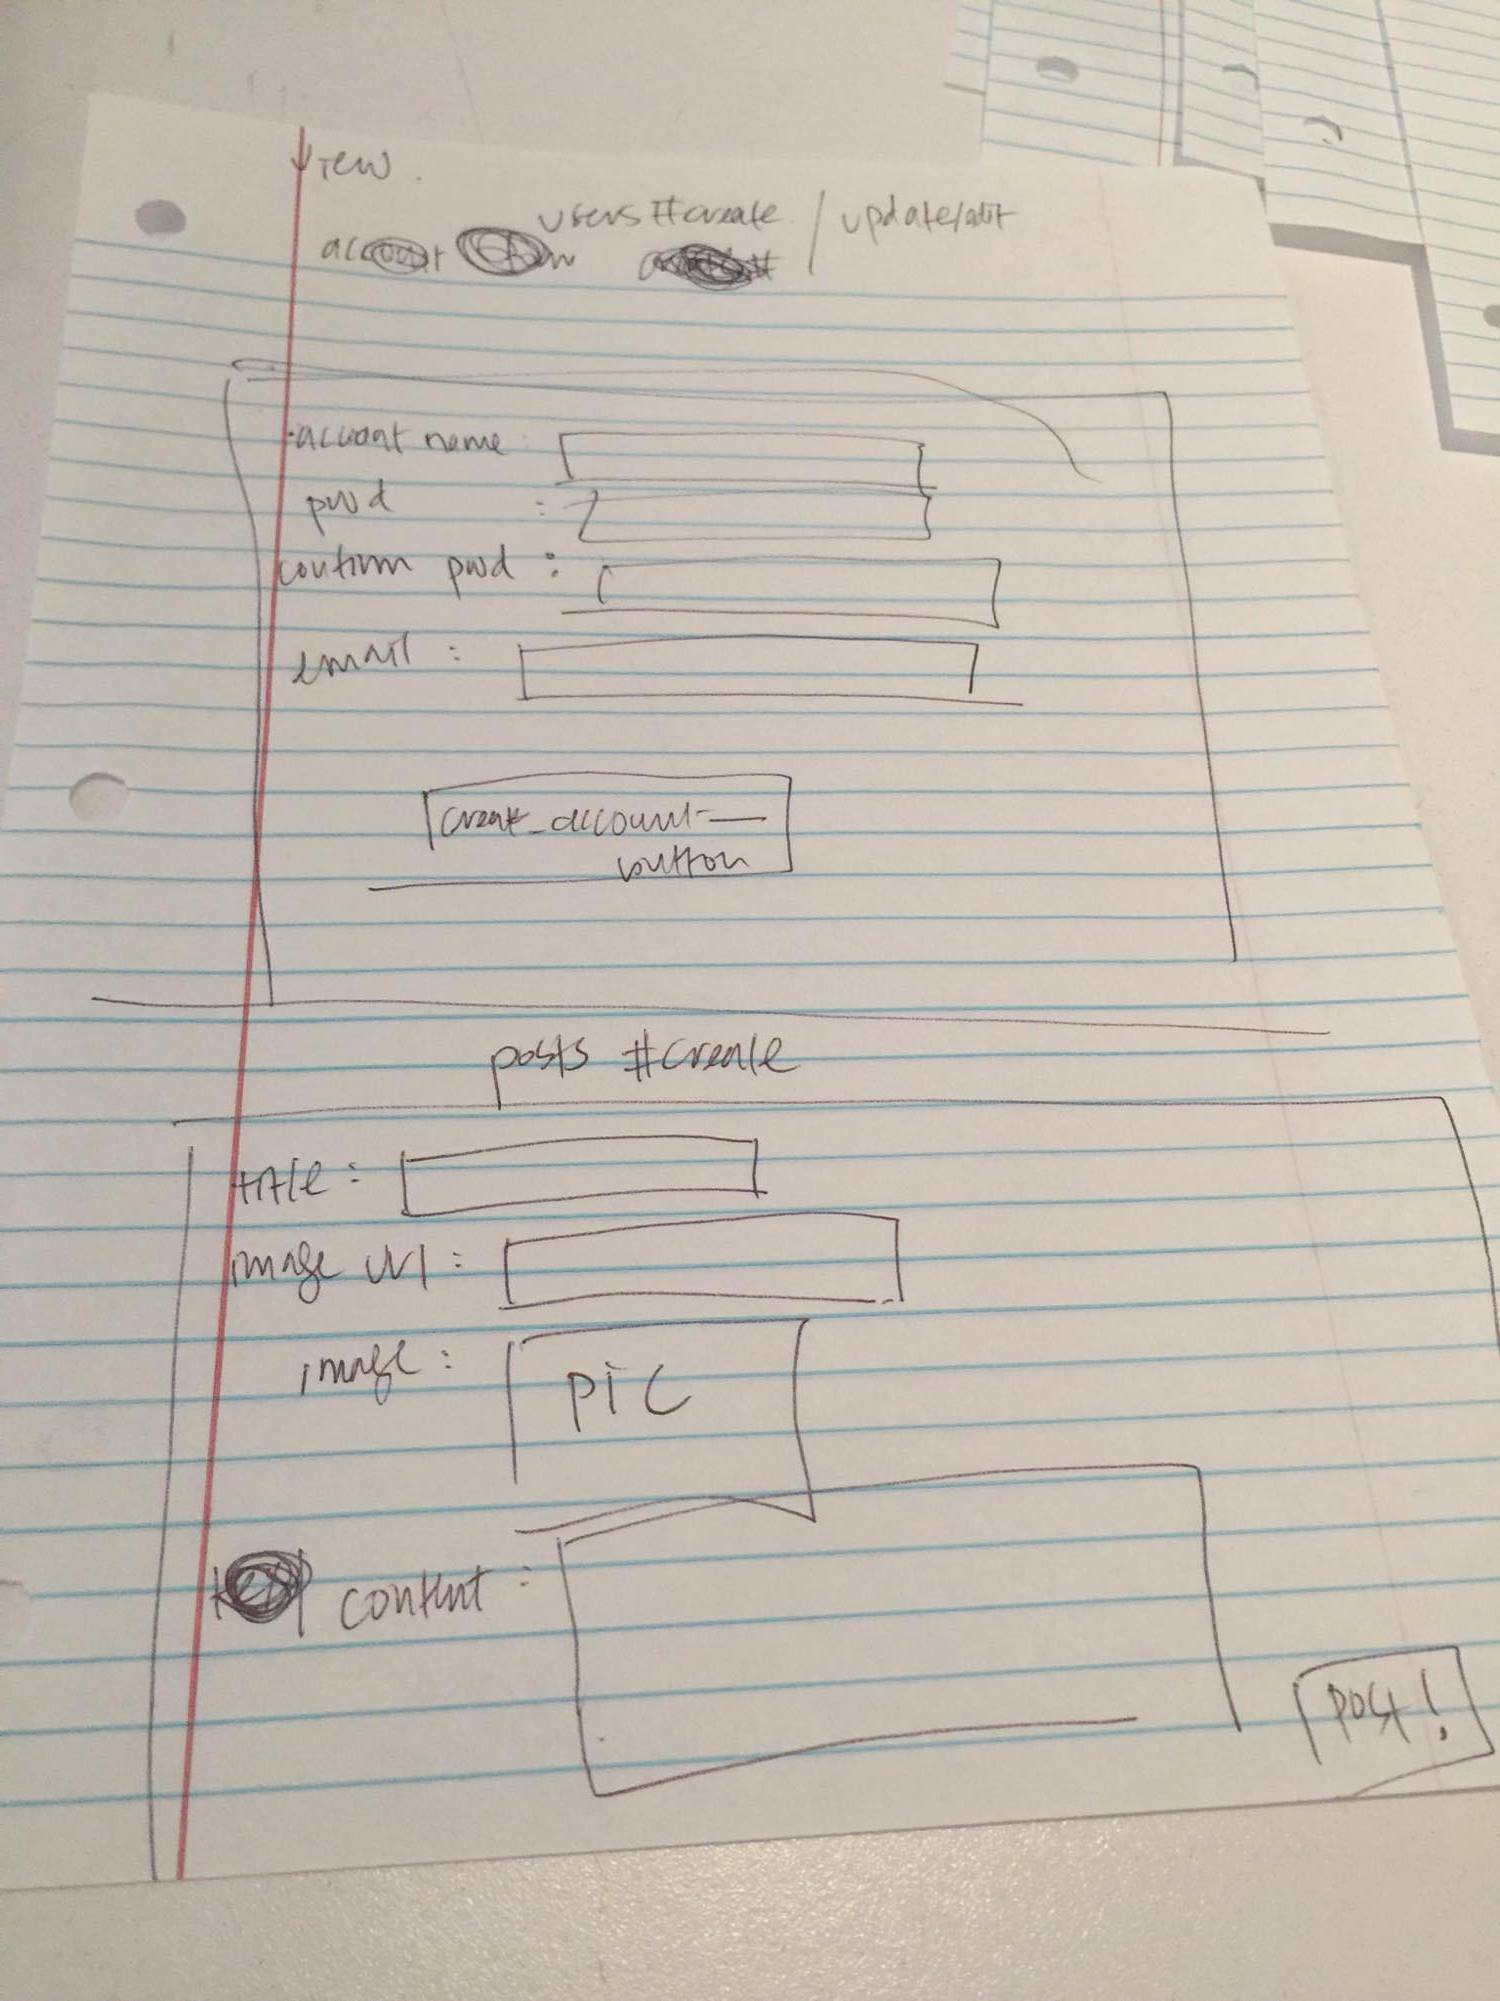 View.
users #create / update/edit
account name :
pwd :
confirm pwd :
email :
create_account_
button
posts #create
title :
image url :
image :
pic
content :
post!